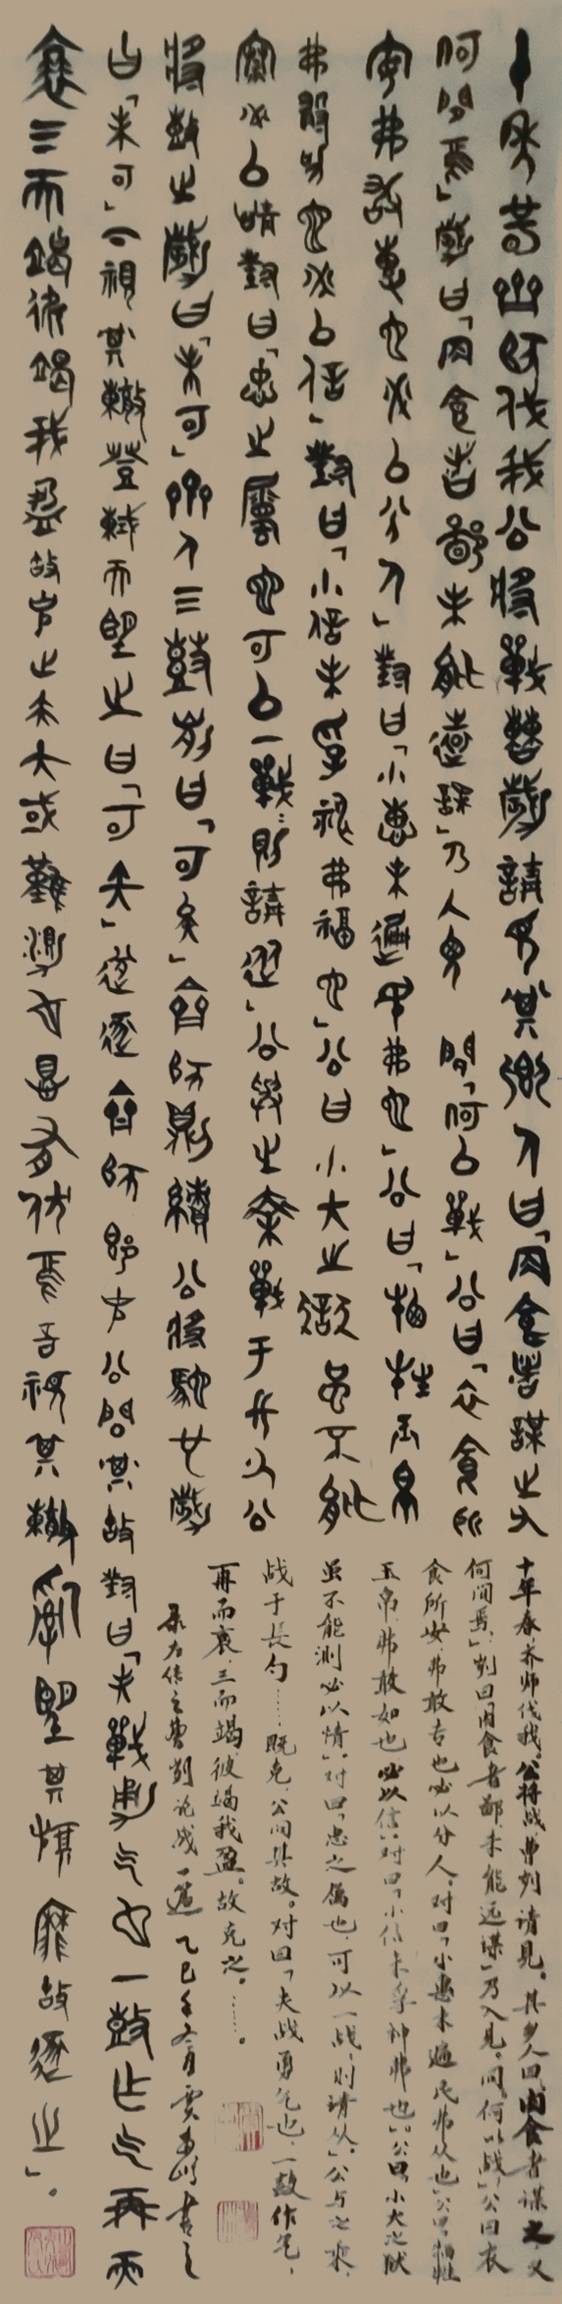 十年春齊師伐我公將戰曹劌請見其鄉人曰「肉食者謀之又
何間焉」劌曰「肉食者鄙未能遠謀」乃入見 問「何以戰」公曰「衣食所
安弗敢專也必以分人」對曰「小惠未遍民弗也」公曰「犧牲玉帛
弗敢加也必以信」對曰「小信未孚神弗福也」公曰小大之獄雖不能
察必以情對曰「忠之屬也可以一戰則請從」公與之乘戰于長勺公
將鼓之劌曰「未可」齊人三鼓劌曰「可矣」齊師敗績公將馳之劌
曰「未可」下視其轍登軾而望之曰「可矣」遂逐齊師既克公問其故對曰「夫戰勇氣也一鼓作氣再而
衰三而竭彼竭我盈故克之夫大國難測也懼有伏焉吾視其轍亂望其旗靡故逐之」。
十年春，齐师伐我。公将战，曹刿请见。其乡人曰，肉食者谋之，又
何间焉」刿曰「肉食者鄙，未能远谋」乃入见。问，何以战」公曰衣
食所安，弗敢专也，必以分人。对曰「小惠未遍，民弗从也」公曰「牺牲
玉帛，弗敢加也，必以信」对曰「小信未孚，神弗也」。公曰，小大之狱
虽不能测，必以情」对曰「忠之属也，可以一战，则请从」公与之乘，
战于長勺……既克，公问其故。对曰「夫战，勇气也，一鼓作气，
再而衰，三而竭，彼竭我盈。故克之。……。
录左传之曹刿论战一篇 乙巳年 书之